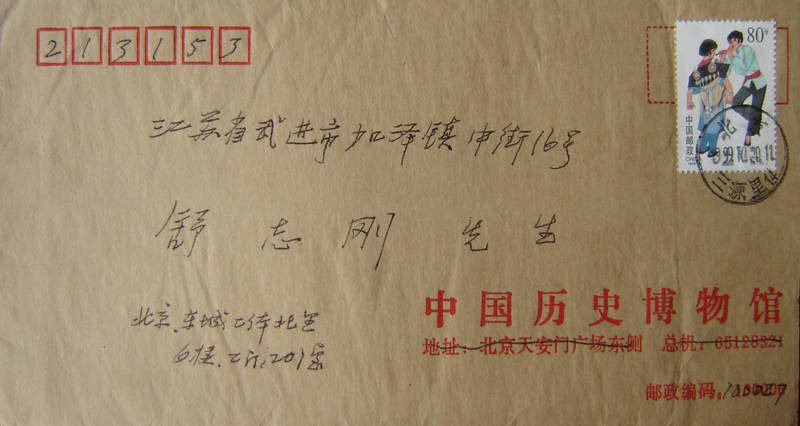 213153
80分
中国邮政
CHINA
北京
1999.10.30.11
三源里
江苏省武进市加泽镇中街16号
舒志刚 先生
北京.东城工体北里
6楼.2门.201号
中国历史博物馆
地址:北京天安门广场东侧 总机:65128321
邮政编码:100027